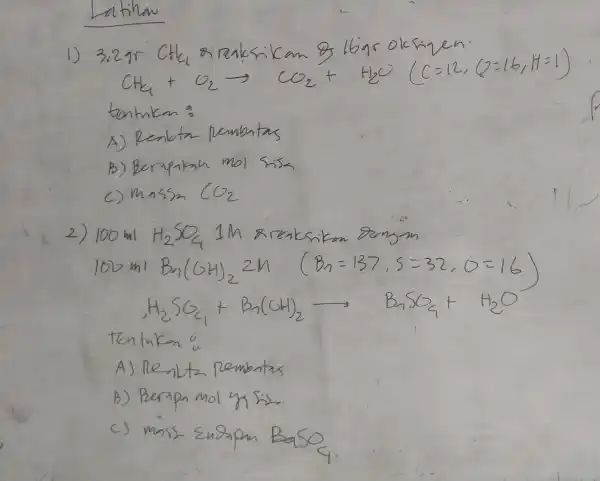 Latihan
1) 3,2 gr CH4 direaksikan dg 16 gr oksigen.
CH4 + O2 → CO2 + H2O (C=12, O=16, H=1)
tentukan :
A) Reakta pembatas
B) Berapakah mol sisa
C) Massa CO2
2) 100 ml H2SO4 1M direaksikan dengan
100 ml Ba(OH)2 2M (Ba=137, S=32, O=16)
H2SO4 + Ba(OH)2 → BaSO4 + H2O
tentukan :
A) Reakta pembatas
B) Berapa mol yg sisa
C) mass endapan BaSO4.